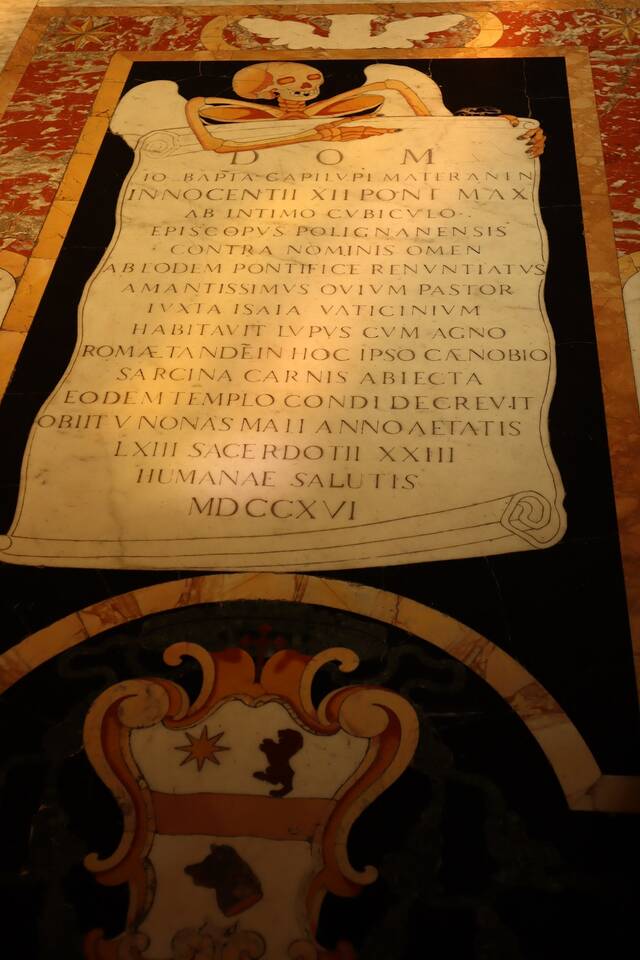 D O M
IO BAPTA CAPILUPI MATERANEN
INNOCENTII XII PONT MAX
AB INTIMO CVBICVLO
EPISCOPVS POLIGNANENSIS
CONTRA NOMINIS OMEN
AB EODEM PONTIFICE RENVNTIATVS
AMANTISSIMVS OVIVM PASTOR
IVXTA ISAIA VATICINIVM
HABITAVIT LVPVS CVM AGNO
ROMÆ TANDĒ IN HOC IPSO CÆNOBIO
SARCINA CARNIS ABIECTA
EODEM TEMPLO CONDI DECREVIT
OBIIT V NONAS MAII ANNO AETATIS
LXIII SACERDOTII XXIII
HUMANAE SALUTIS
MDCCXVI